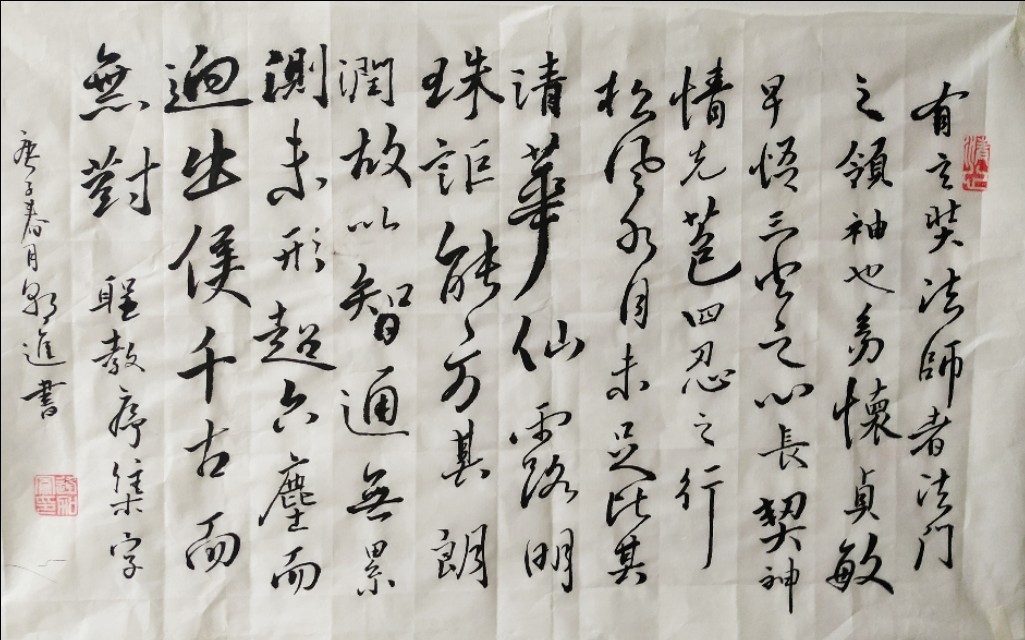 有玄奘法師者法門
之領袖也幼懷貞敏
早悟三空之心長契神
情先苞四忍之行
松風水月未足比其
清華仙露明
珠詎能方其朗
潤故以智通無累
測未形超六塵而
迥出隻千古而
無對 聖教序集字
庚子春月進書